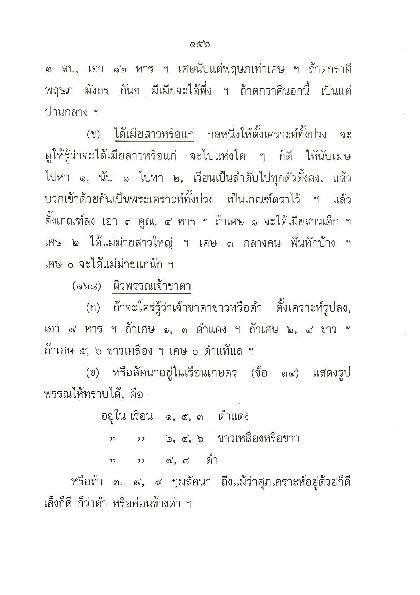 ๑๕๖
๓ ลบ, เอา ๑๒ หาร ฯ เศษนับแต่พฤษภเท่าเศษ ฯ ถ้าตกราศี
พฤษภ มังกร กันย มีเมียจะได้พึ่ง ฯ ถ้าตกราศีนอกนี้ เป็นแต่
ปานกลาง ฯ
(ข) ได้เมียสาวหรือแก่ กลหนึ่งให้ตั้งเคราะห์ทั้งปวง จะ
ดูให้รู้ว่าจะได้เมียสาวหรือแก่ จะไปแห่งใด ๆ ก็ดี ให้นับเมษ
ไปหา ๑, นับ ๑ ไปหา ๒, เรียนเป็นลำดับไปทุกตัวตั้งลง, แล้ว
บวกเข้าด้วยกันเป็นพระเคราะห์ทั้งปวง เป็นเกณฑ์ตราไว้ ฯ แล้ว
ตั้งเกณฑ์ลง เอา ๓ คูณ, ๔ หาร ฯ ถ้าเศษ ๑ จะได้เมียสาวเด็ก ฯ
เศษ ๒ ได้แม่ม่ายสาวใหญ่ ฯ เศษ ๓ กลางคน ฟันหักบ้าง ฯ
เศษ ๐ จะได้แม่ม่ายแก่นัก ฯ
(๑๒๘) ผิวพรรณเจ้าชาตา
(ก) ถ้าจะใคร่รู้ว่าเจ้าชาตาขาวหรือดำ ตั้งเคราะห์รูปลง,
เอา ๗ หาร ฯ ถ้าเศษ ๑, ๓ ดำแดง ฯ ถ้าเศษ ๒, ๔ ขาว ฯ
ถ้าเศษ ๕, ๖ ขาวเหลือง ฯ เศษ ๐ ดำแท้แล ฯ
(ข) หรือลัคนาอยู่ในเรือนเกษตร (ข้อ ๓๔) แสดงรูป
พรรณให้ทราบได้, คือ
อยู่ใน เรือน ๑, ๕, ๓ ดำแดง
" " ๒, ๔, ๖ ขาวเหลืองหรือขาว
" " ๗, ๘ ดำ
หรือถ้า ๓, ๗, ๘ กุมลัคนา ถึงแม้ว่าศุภเคราะห์อยู่ด้วยก็ดี
เล็งก็ดี ก็ว่าดำ หรือค่อนข้างดำ ฯ